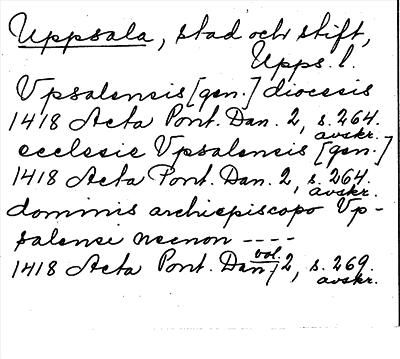 Uppsala, stad och stift,
Upps. l.
Vpsalensis [gen.] diocesis
1418 Acta Pont. Dan. 2, s. 264.
avskr.
ecclesie Vpsalensis [gen.]
1418 Acta Pont. Dan. 2, s. 264.
avskr.
dominis archiepiscopo Vp-
salensi necnon ----
1418 Acta Pont. Dan, vol. 2, s. 269.
avskr.